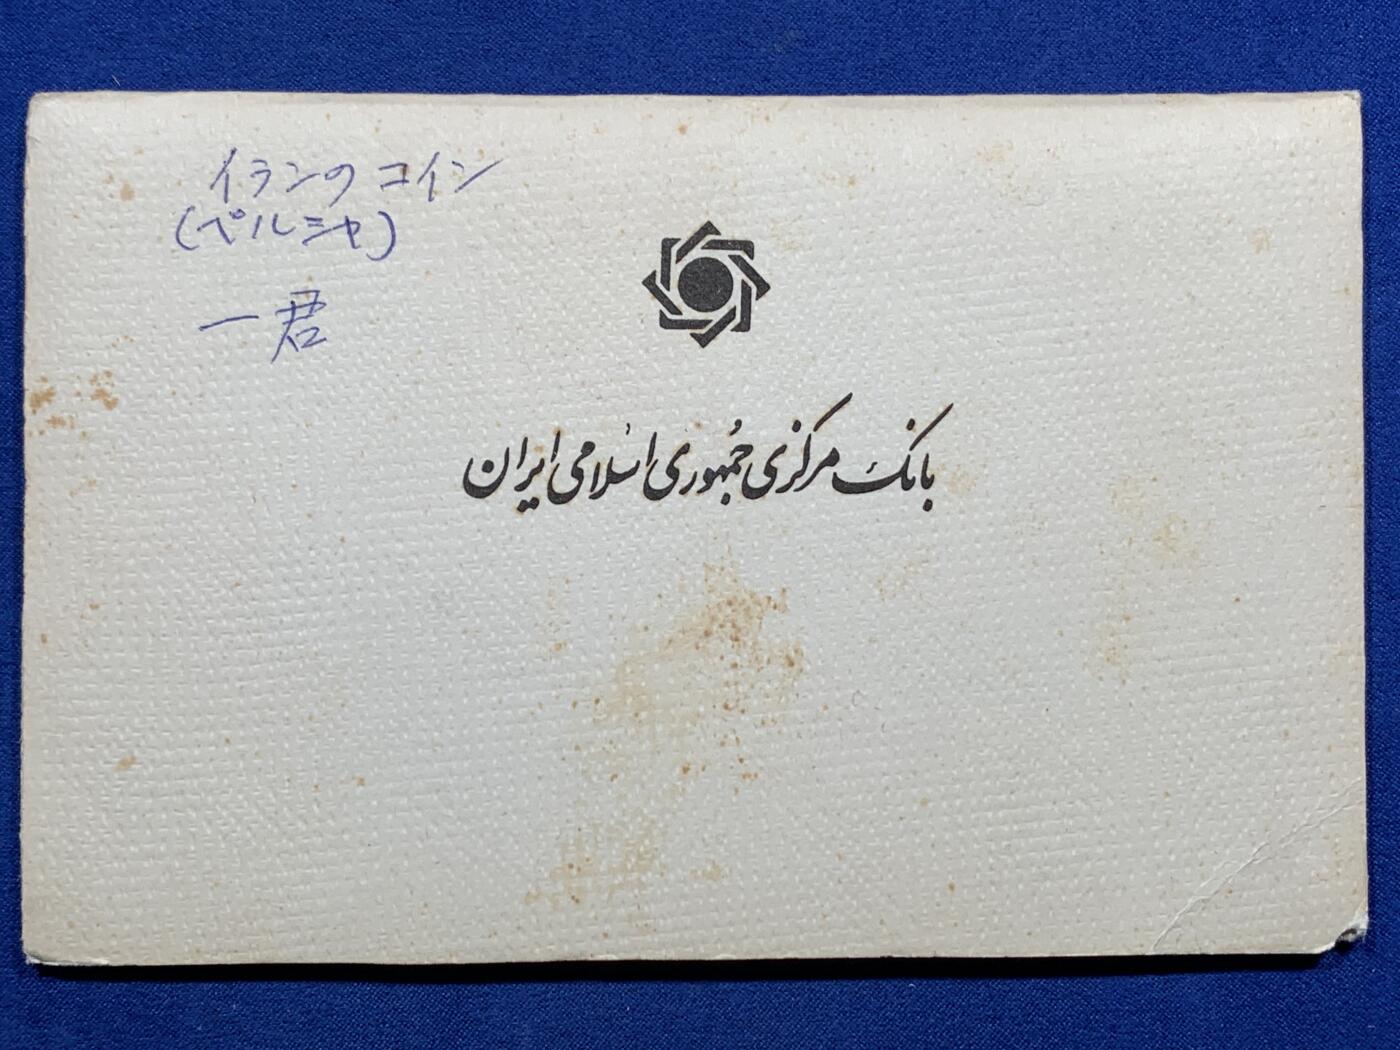 イランのコイン
(ペルシャ)
一君
بانک مرکزی جمهوری اسلامی ایران